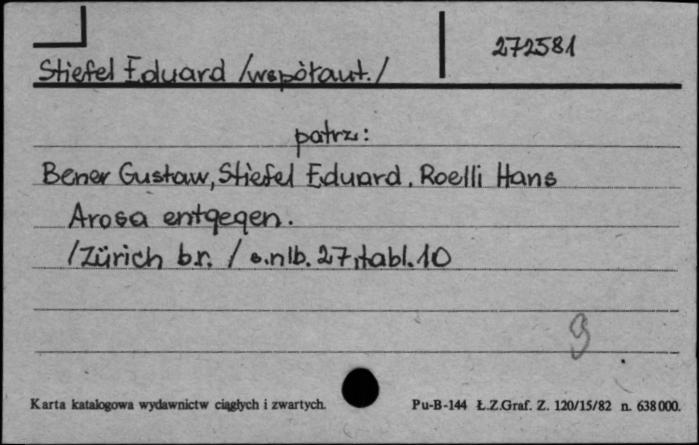 272581
Stiefel Eduard /współaut./
patrz:
Bener Gustaw, Stiefel Eduard, Roelli Hans
Arosa entgegen.
/Zürich b.r. / s.nlb. 27, tabl. 10
9
Karta katalogowa wydawnictw ciągłych i zwartych. Pu-B-144 Ł.Z.Graf. Z. 120/15/82 n. 638000.